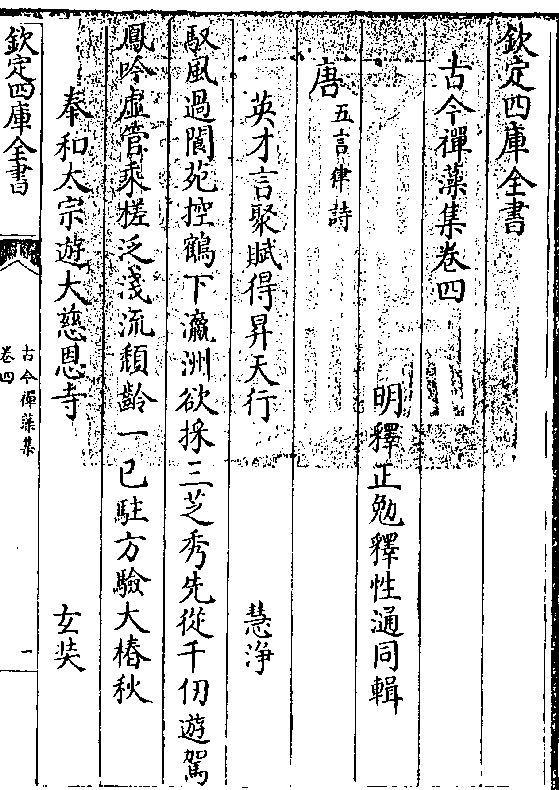 欽定四庫全書
古今禪藻集卷四
明釋正勉釋性𣿰同輯
唐
五言律詩
英才言聚賦得昇天行 慧淨
馭風過閬苑控鶴下瀛洲欲採三芝秀先從千仞遊駕
鳳吟虛管乘槎泛淺流頹齡一已駐方驗大椿秋
奉和太宗遊大慈恩寺 玄奘
欽定四庫全書
古今禪藻集
卷四
一